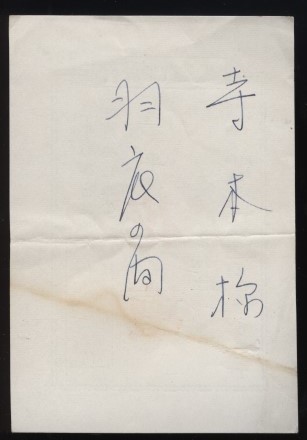 寺本様
羽衣の間